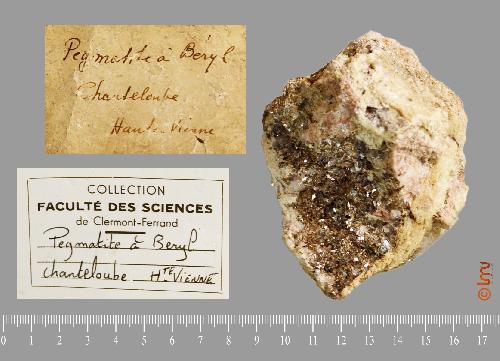 Pegmatite à Béryl
Chanteloube
Haute Vienne
COLLECTION
FACULTÉ DES SCIENCES
de Clermont-Ferrand
Pegmatite à Beryl
chanteloube _ Hte VIENNE
0 1 2 3 4 5 6 7 8 9 10 11 12 13 14 15 16 17